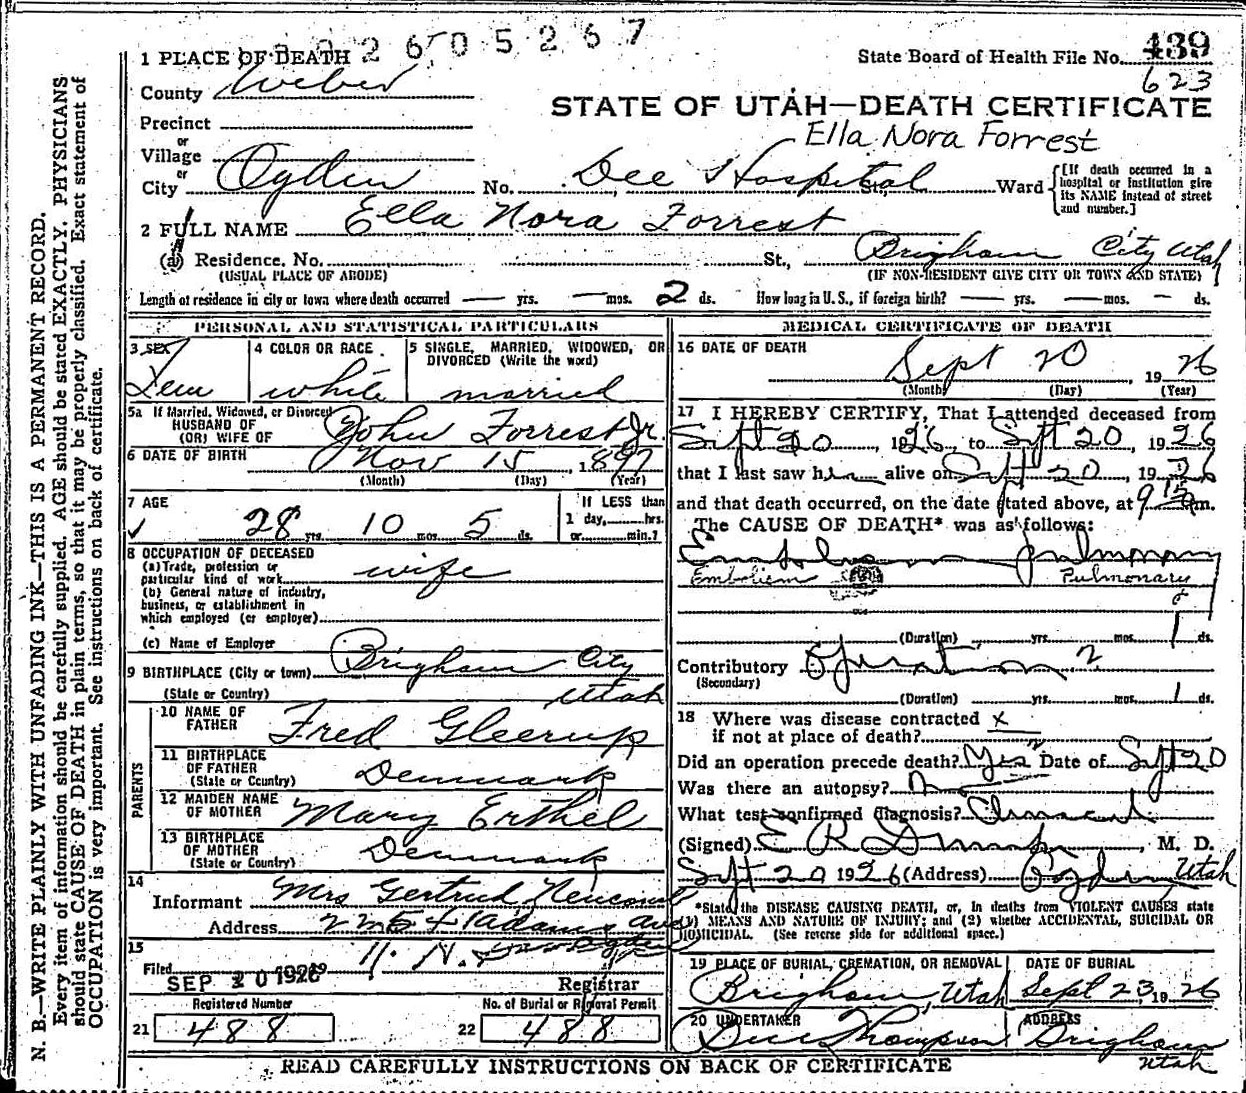 2605267
1 PLACE OF DEATH
State Board of Health File No. 439
623
County Weber
STATE OF UTAH—DEATH CERTIFICATE
Precinct
Ella Nora Forrest
or
Village
or
City Ogden No. Dee Hospital St., Ward
[If death occurred in a hospital or institution give its NAME instead of street and number.]
2 FULL NAME Ella Nora Forrest
(a) Residence, No. St., Brigham City Utah
(USUAL PLACE OF ABODE) (IF NON-RESIDENT GIVE CITY OR TOWN AND STATE)
Length of residence in city or town where death occurred — yrs. — mos. 2 ds. How long in U. S., if foreign birth? — yrs. — mos. — ds.
PERSONAL AND STATISTICAL PARTICULARS
3 SEX
Fem
4 COLOR OR RACE
white
5 SINGLE, MARRIED, WIDOWED, OR DIVORCED (Write the word)
married
5a If Married, Widowed, or Divorced
HUSBAND OF
(OR) WIFE OF John Forrest Jr.
6 DATE OF BIRTH Nov 15, 1897
(Month) (Day) (Year)
7 AGE
28 yrs. 10 mos. 5 ds.
If LESS than
1 day, hrs.
or min.?
8 OCCUPATION OF DECEASED
(a) Trade, profession or
particular kind of work wife
(b) General nature of industry,
business, or establishment in
which employed (or employer)
(c) Name of Employer
9 BIRTHPLACE (City or town) Brigham City
(State or Country) Utah
PARENTS
10 NAME OF
FATHER Fred Gleerup
11 BIRTHPLACE
OF FATHER
(State or Country) Denmark
12 MAIDEN NAME
OF MOTHER Mary Erthel
13 BIRTHPLACE
OF MOTHER
(State or Country) Denmark
14
Informant Mrs Gertrud
Address 2254 Adams Ave
Ogden
15
Filed SEP 20 1926 H. N.
Registrar
Registered Number
21 488
No. of Burial or Removal Permit
22 488
MEDICAL CERTIFICATE OF DEATH
16 DATE OF DEATH
Sept 20, 1926
(Month) (Day) (Year)
17 I HEREBY CERTIFY, That I attended deceased from
Sept 20, 1926, to Sept 20, 1926
that I last saw her alive on Sept 20, 1926
and that death occurred, on the date stated above, at 9 15 m.
The CAUSE OF DEATH* was as follows:
Embolism pulmonary
Embolism Pulmonary
(Duration) yrs. mos. 1 ds.
Contributory Operation
(Secondary)
(Duration) yrs. mos. 1 ds.
18 Where was disease contracted x
if not at place of death?
Did an operation precede death? Yes Date of Sept 20
Was there an autopsy? No
What test confirmed diagnosis? Clinical
(Signed) E R, M. D.
Sept 20 1926 (Address) Ogden Utah
*State the DISEASE CAUSING DEATH, or, in deaths from VIOLENT CAUSES state
(1) MEANS AND NATURE OF INJURY; and (2) whether ACCIDENTAL, SUICIDAL OR
HOMICIDAL. (See reverse side for additional space.)
19 PLACE OF BURIAL, CREMATION, OR REMOVAL
Brigham, Utah
DATE OF BURIAL
Sept 23, 1926
20 UNDERTAKER
Thompson
ADDRESS
Brigham
Utah
READ CAREFULLY INSTRUCTIONS ON BACK OF CERTIFICATE
N. B.—WRITE PLAINLY WITH UNFADING INK—THIS IS A PERMANENT RECORD.
Every item of information should be carefully supplied. AGE should be stated EXACTLY. PHYSICIANS
should state CAUSE OF DEATH in plain terms, so that it may be properly classified. Exact statement of
OCCUPATION is very important. See instructions on back of certificate.